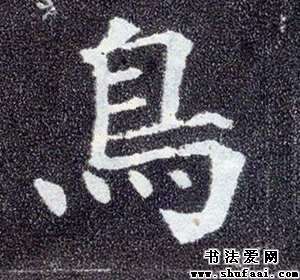 鳥
书法爱网
www.shufaai.com